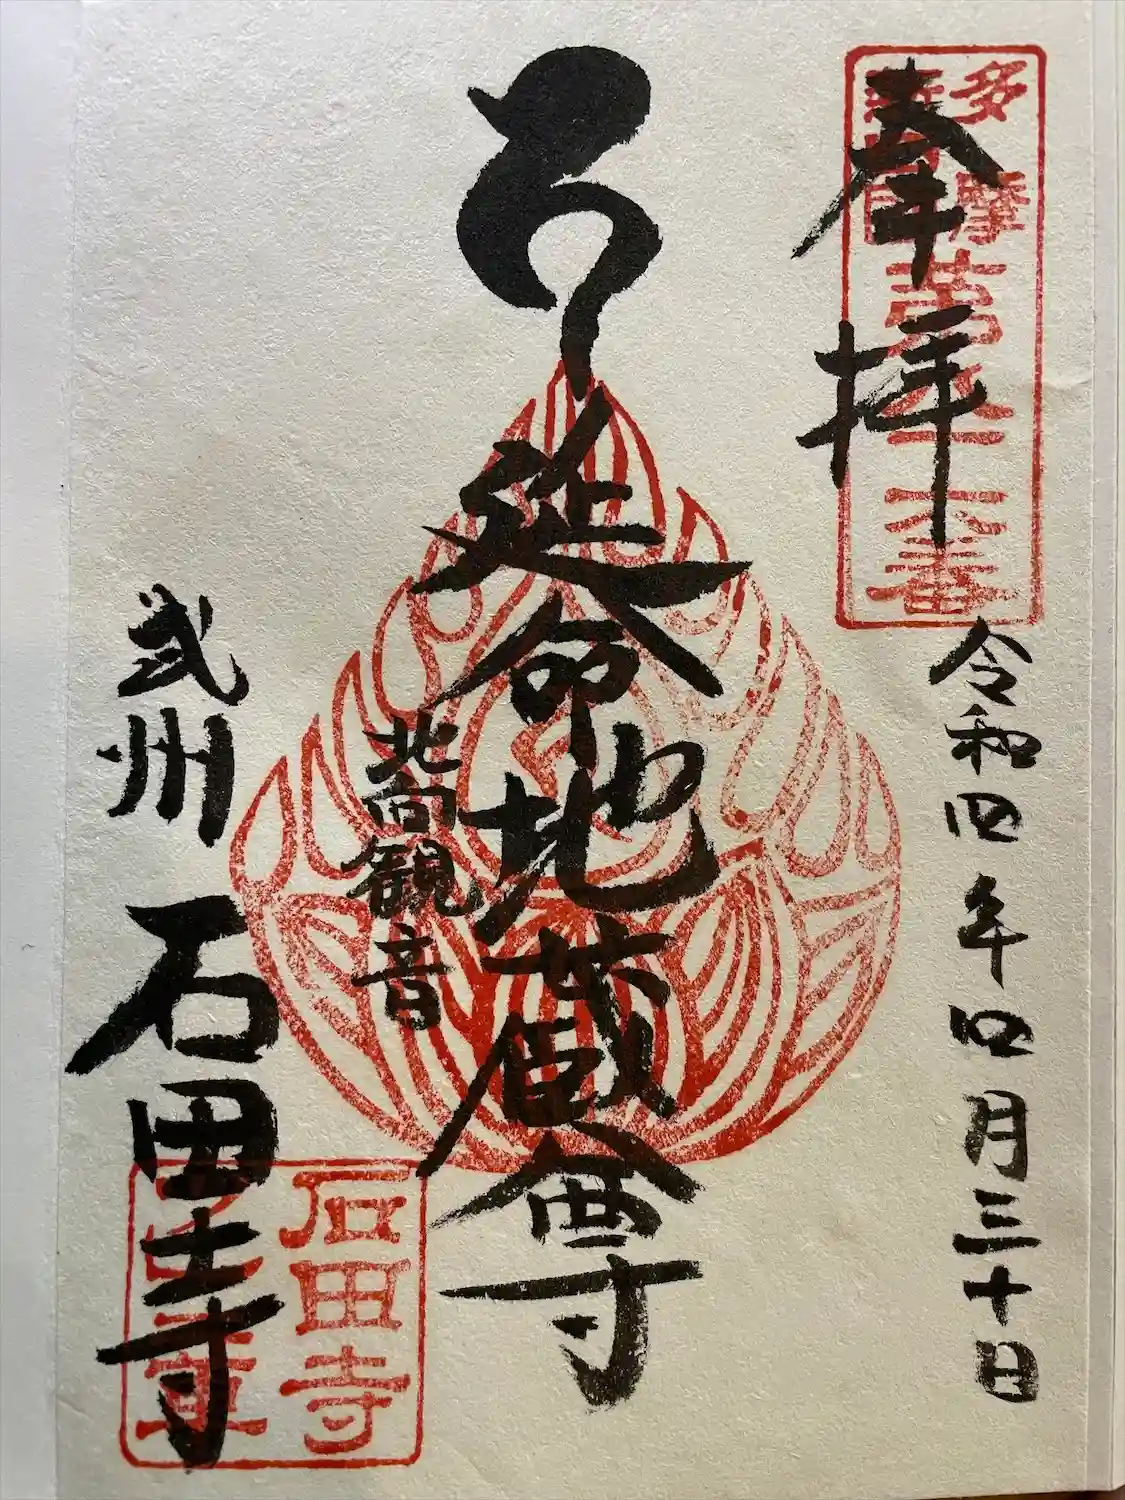 奉拝
多摩
新四国
令和四年四月三十日
延命地蔵尊
北向観音
武州 石田寺
石田寺